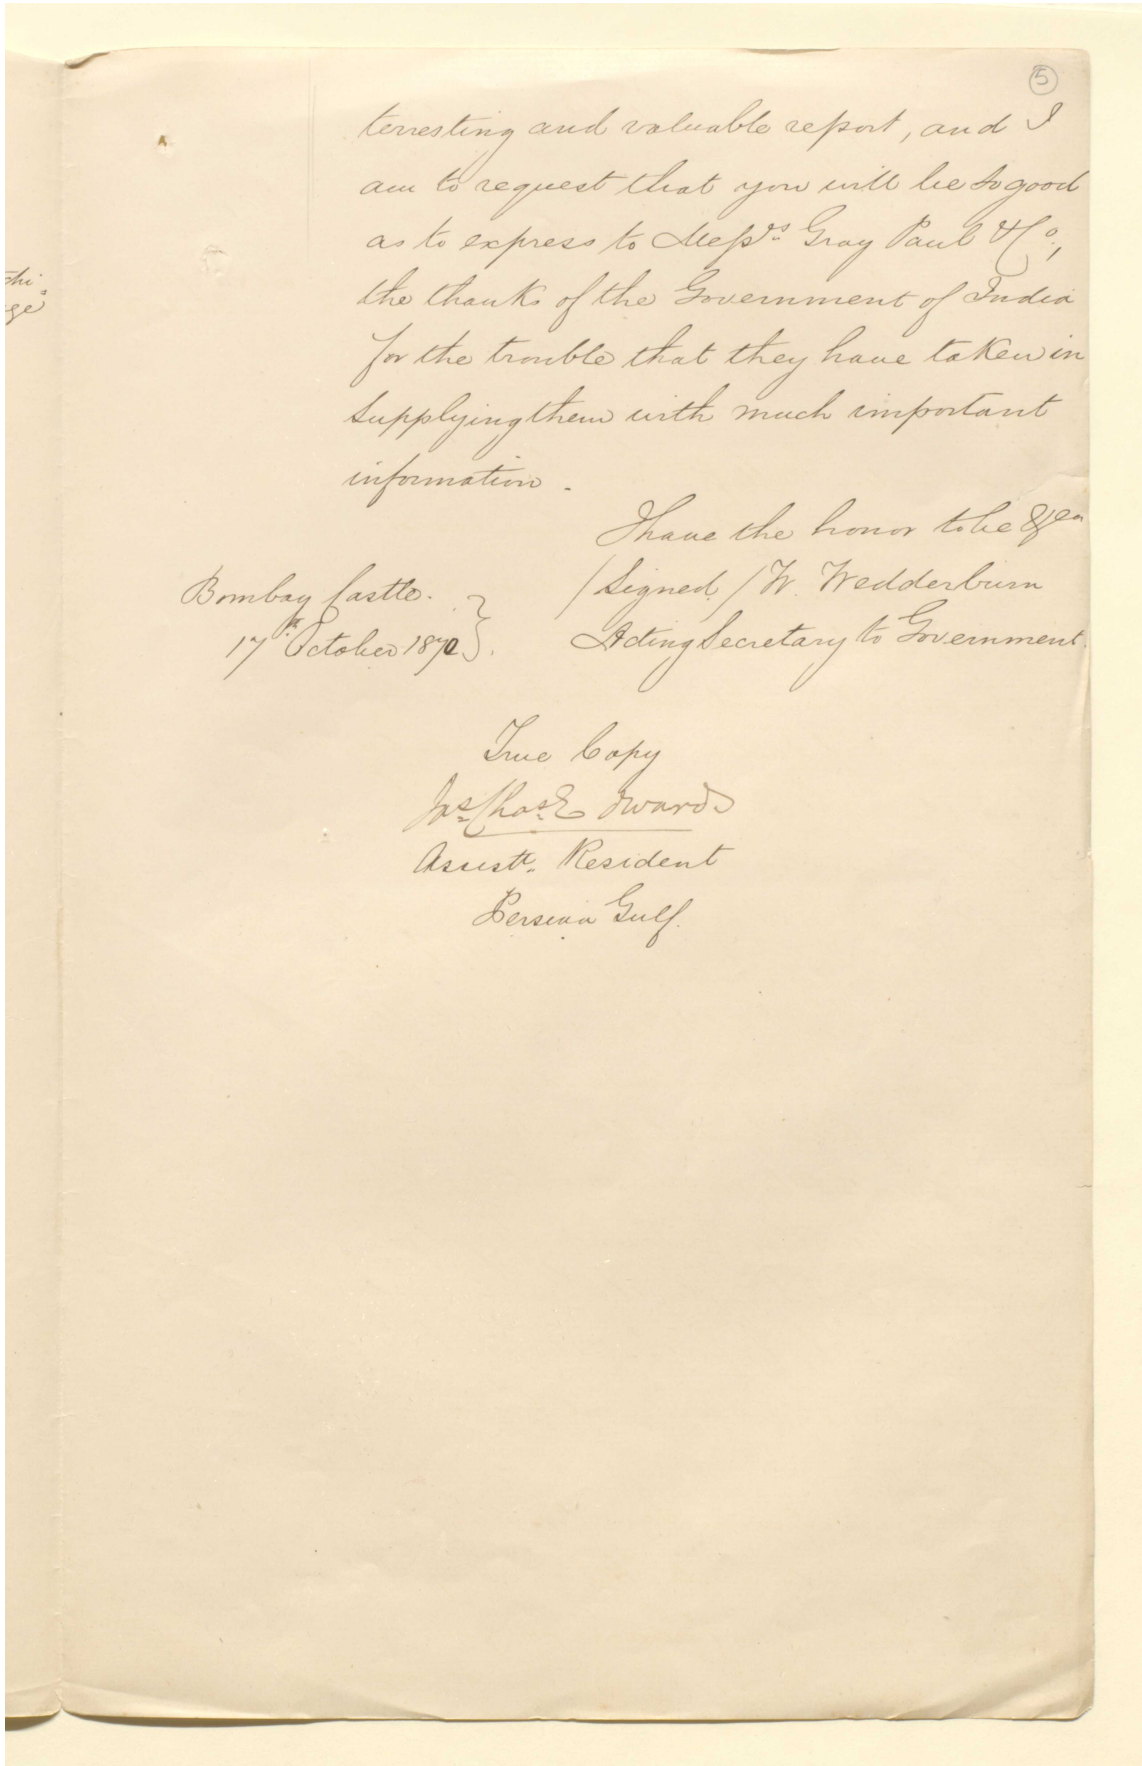 5
terresting and valuable report, and I
am to request that you will be so good
as to express to Messrs. Gray Paul & Co,
the thanks of the Government of India
for the trouble that they have taken in
supplying them with much important
information.
I have the honor to be &ca
/Signed/ W. Wedderburn
Acting Secretary to Government.
Bombay Castle.
17th October 1870.
True Copy
Jas Chas Edwards
Assistt. Resident
Persian Gulf.